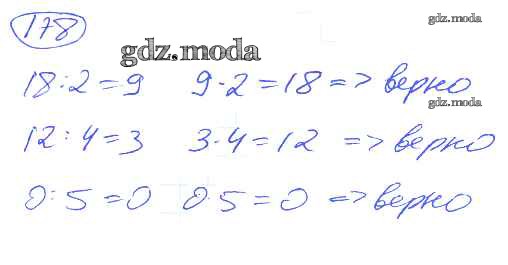 178
gdz.moda
gdz.moda
18:2=9 9·2=18 => верно
gdz.moda
12:4=3 3·4=12 => верно
0:5=0 0·5=0 => верно